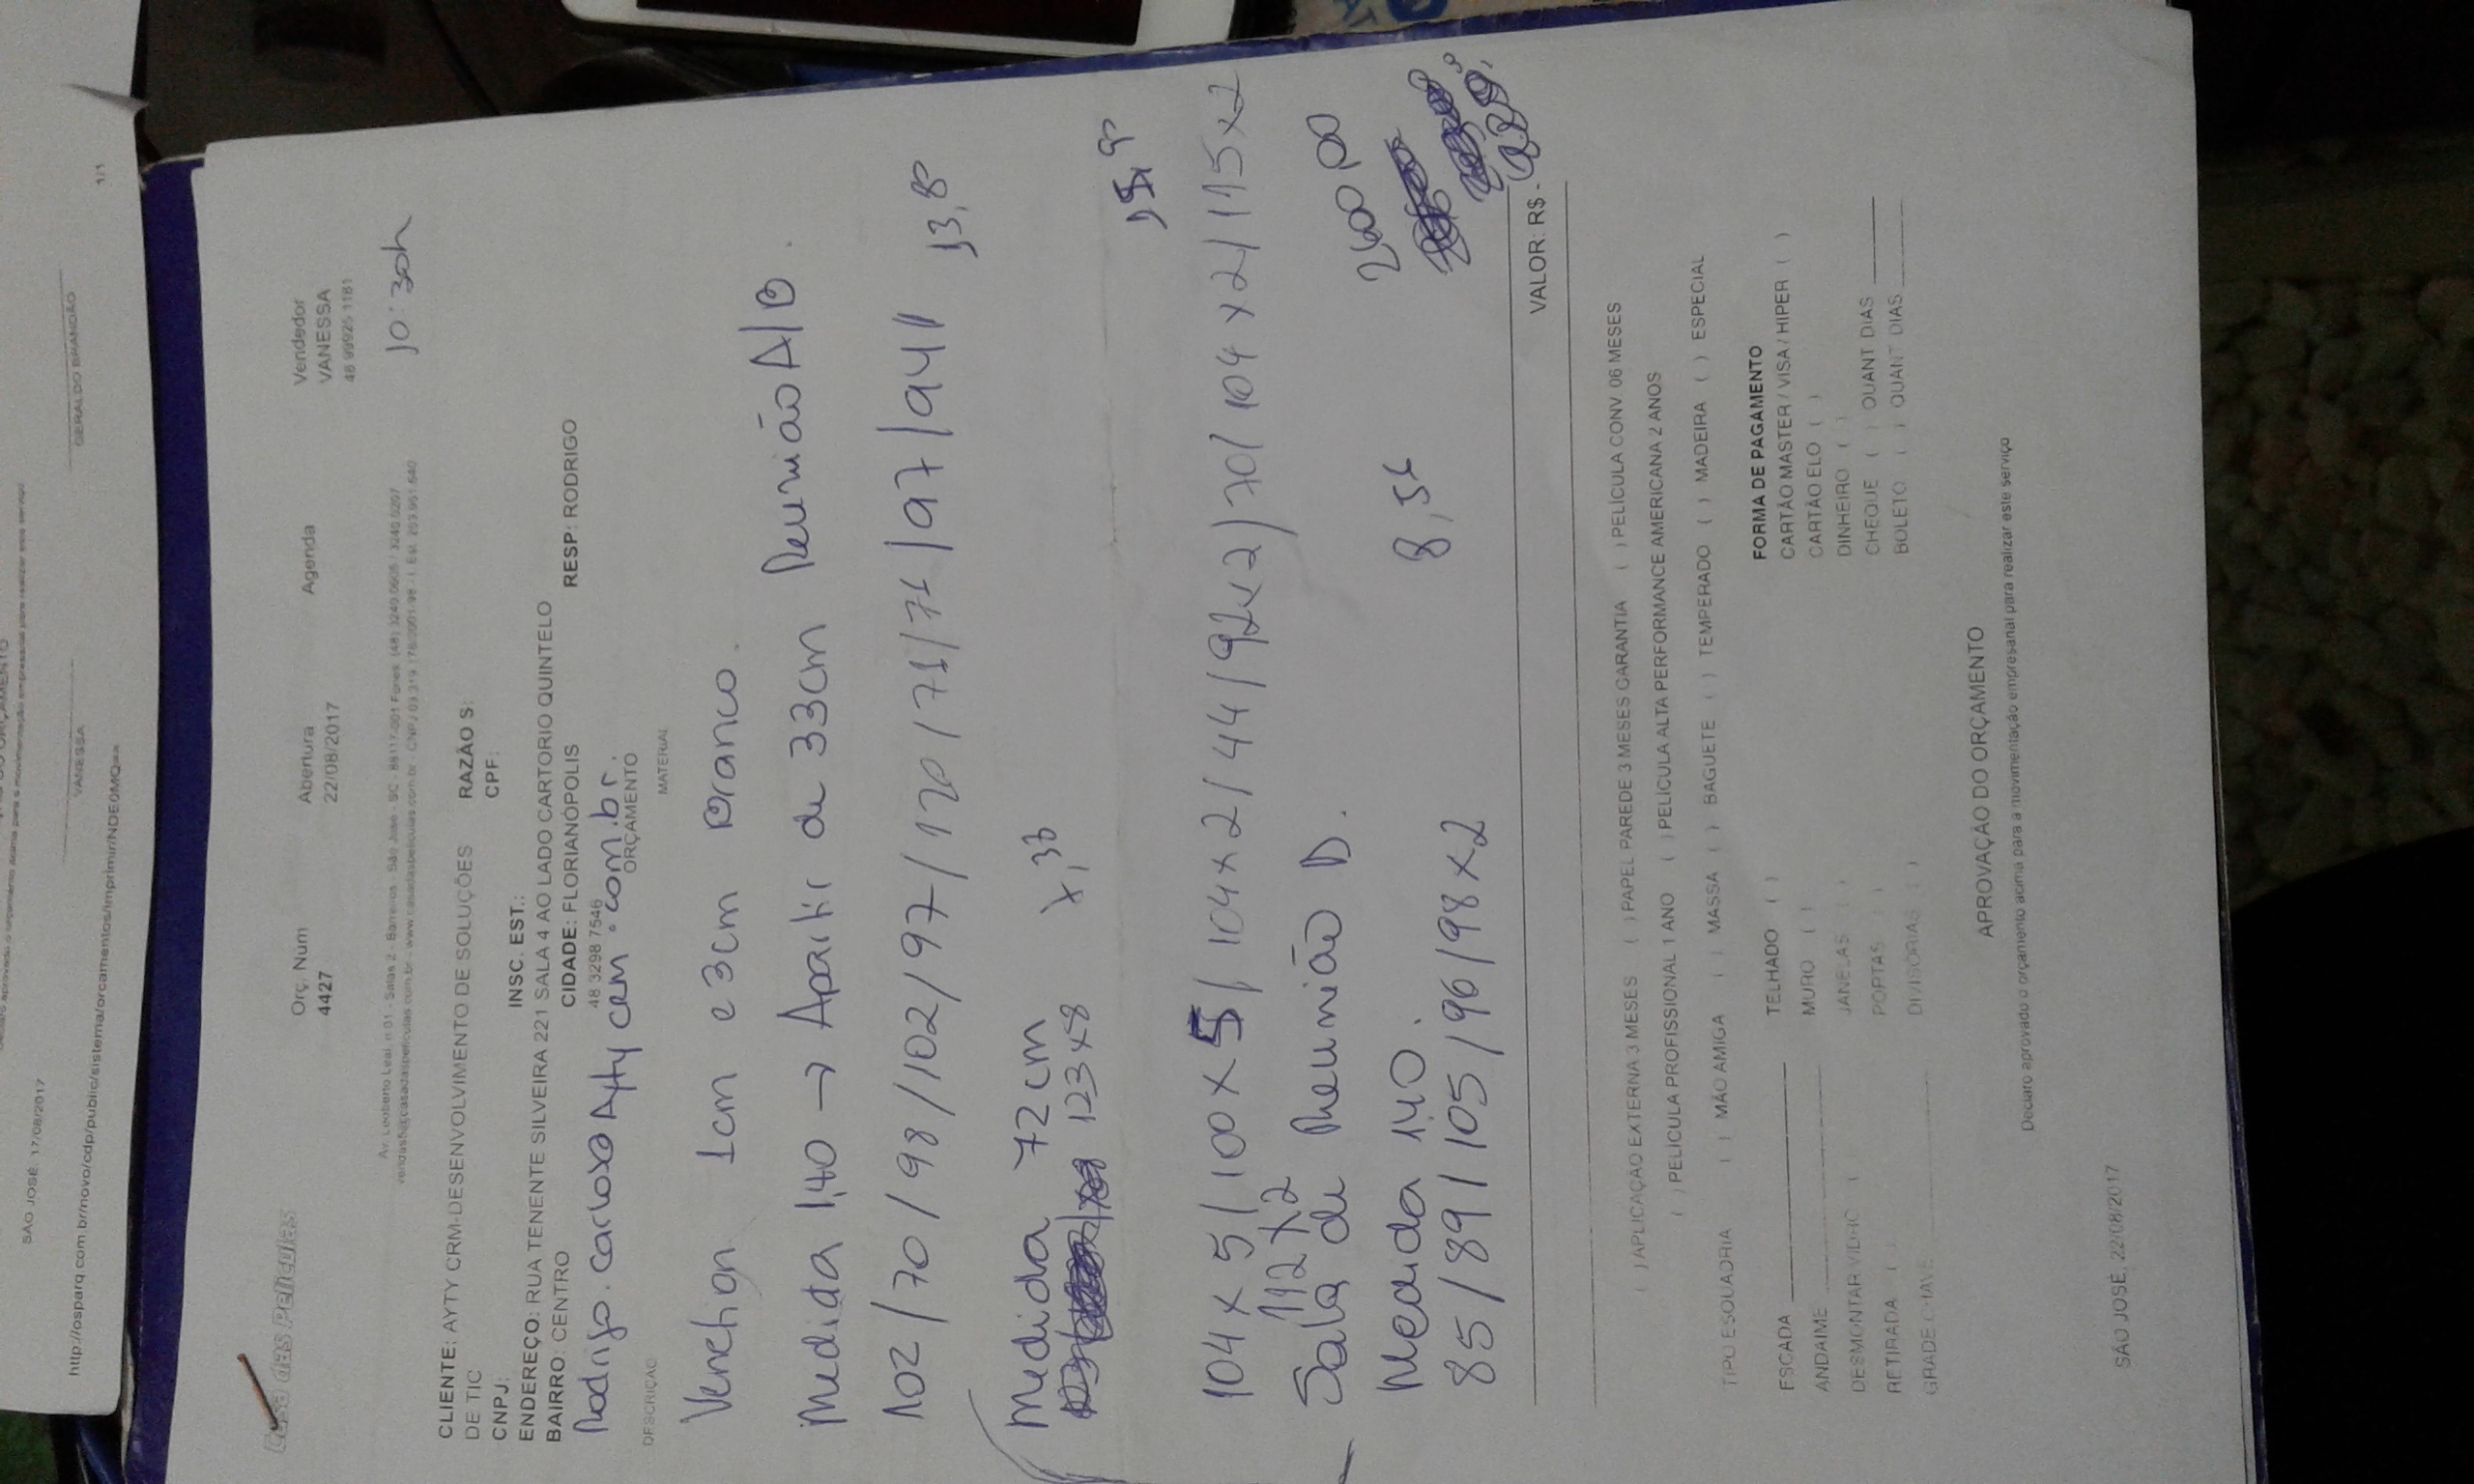 SÃO JOSÉ, 17/08/2017
VANESSA
GERALDO BRANDÃO
http://osparq.com.br/novo/cdp/public/sistema/orcamentos/imprimir/NDE0MQ==
1/1
Casa das Películas
Orç. Num
4427
Abertura
22/08/2017
Agenda
Vendedor
VANESSA
48 99925 1181
10:30h
Av. Leoberto Leal, n 01 - Salas 2 - Barreiros - São José - SC - 88117-001 Fones: (48) 3240.0605 / 3246.0207
CLIENTE: AYTY CRM-DESENVOLVIMENTO DE SOLUÇÕES DE TIC
RAZÃO S:
CNPJ:
CPF:
INSC. EST.:
ENDEREÇO: RUA TENENTE SILVEIRA 221 SALA 4 AO LADO CARTORIO QUINTELO
BAIRRO: CENTRO
CIDADE: FLORIANÓPOLIS
RESP: RODRIGO
48 3298 7546
DESCRIÇÃO
ORÇAMENTO
MATERIAL
1cm e 3cm Branco.
Medida 1,40 → Apartir de 33cm Reunião A/B.
102/70/98/102/97/120/71/71/97/94//
13,8
Medida 72cm
123x8
15,9
104x5/100x5/104x2/44/92x2/70/104x2/115x2
112x2
Sala de Reunião D.
2600,00
Medida 1,40.
85/89/105/96/98x2
VALOR: R$
( ) APLICAÇÃO EXTERNA 3 MESES ( ) PAPEL PAREDE 3 MESES GARANTIA ( ) PELÍCULA CONV. 06 MESES
( ) PELICULA PROFISSIONAL 1 ANO ( ) PELÍCULA ALTA PERFORMANCE AMERICANA 2 ANOS
TIPO ESQUADRIA ( ) MÃO AMIGA ( ) MASSA ( ) BAGUETE ( ) TEMPERADO ( ) MADEIRA ( ) ESPECIAL
ESCADA
ANDAIME
DESMONTAR VIDRO ( )
RETIRADA ( )
GRADE CHAVE
TELHADO ( )
MURO ( )
JANELAS ( )
PORTAS ( )
DIVISORIAS ( )
FORMA DE PAGAMENTO
CARTÃO MASTER / VISA / HIPER ( )
CARTÃO ELO ( )
DINHEIRO ( )
CHEQUE ( ) QUANT DIAS
BOLETO ( ) QUANT DIAS
APROVAÇÃO DO ORÇAMENTO
Declaro aprovado o orçamento acima para a movimentação empresarial para realizar este serviço
SÃO JOSÉ, 22/08/2017